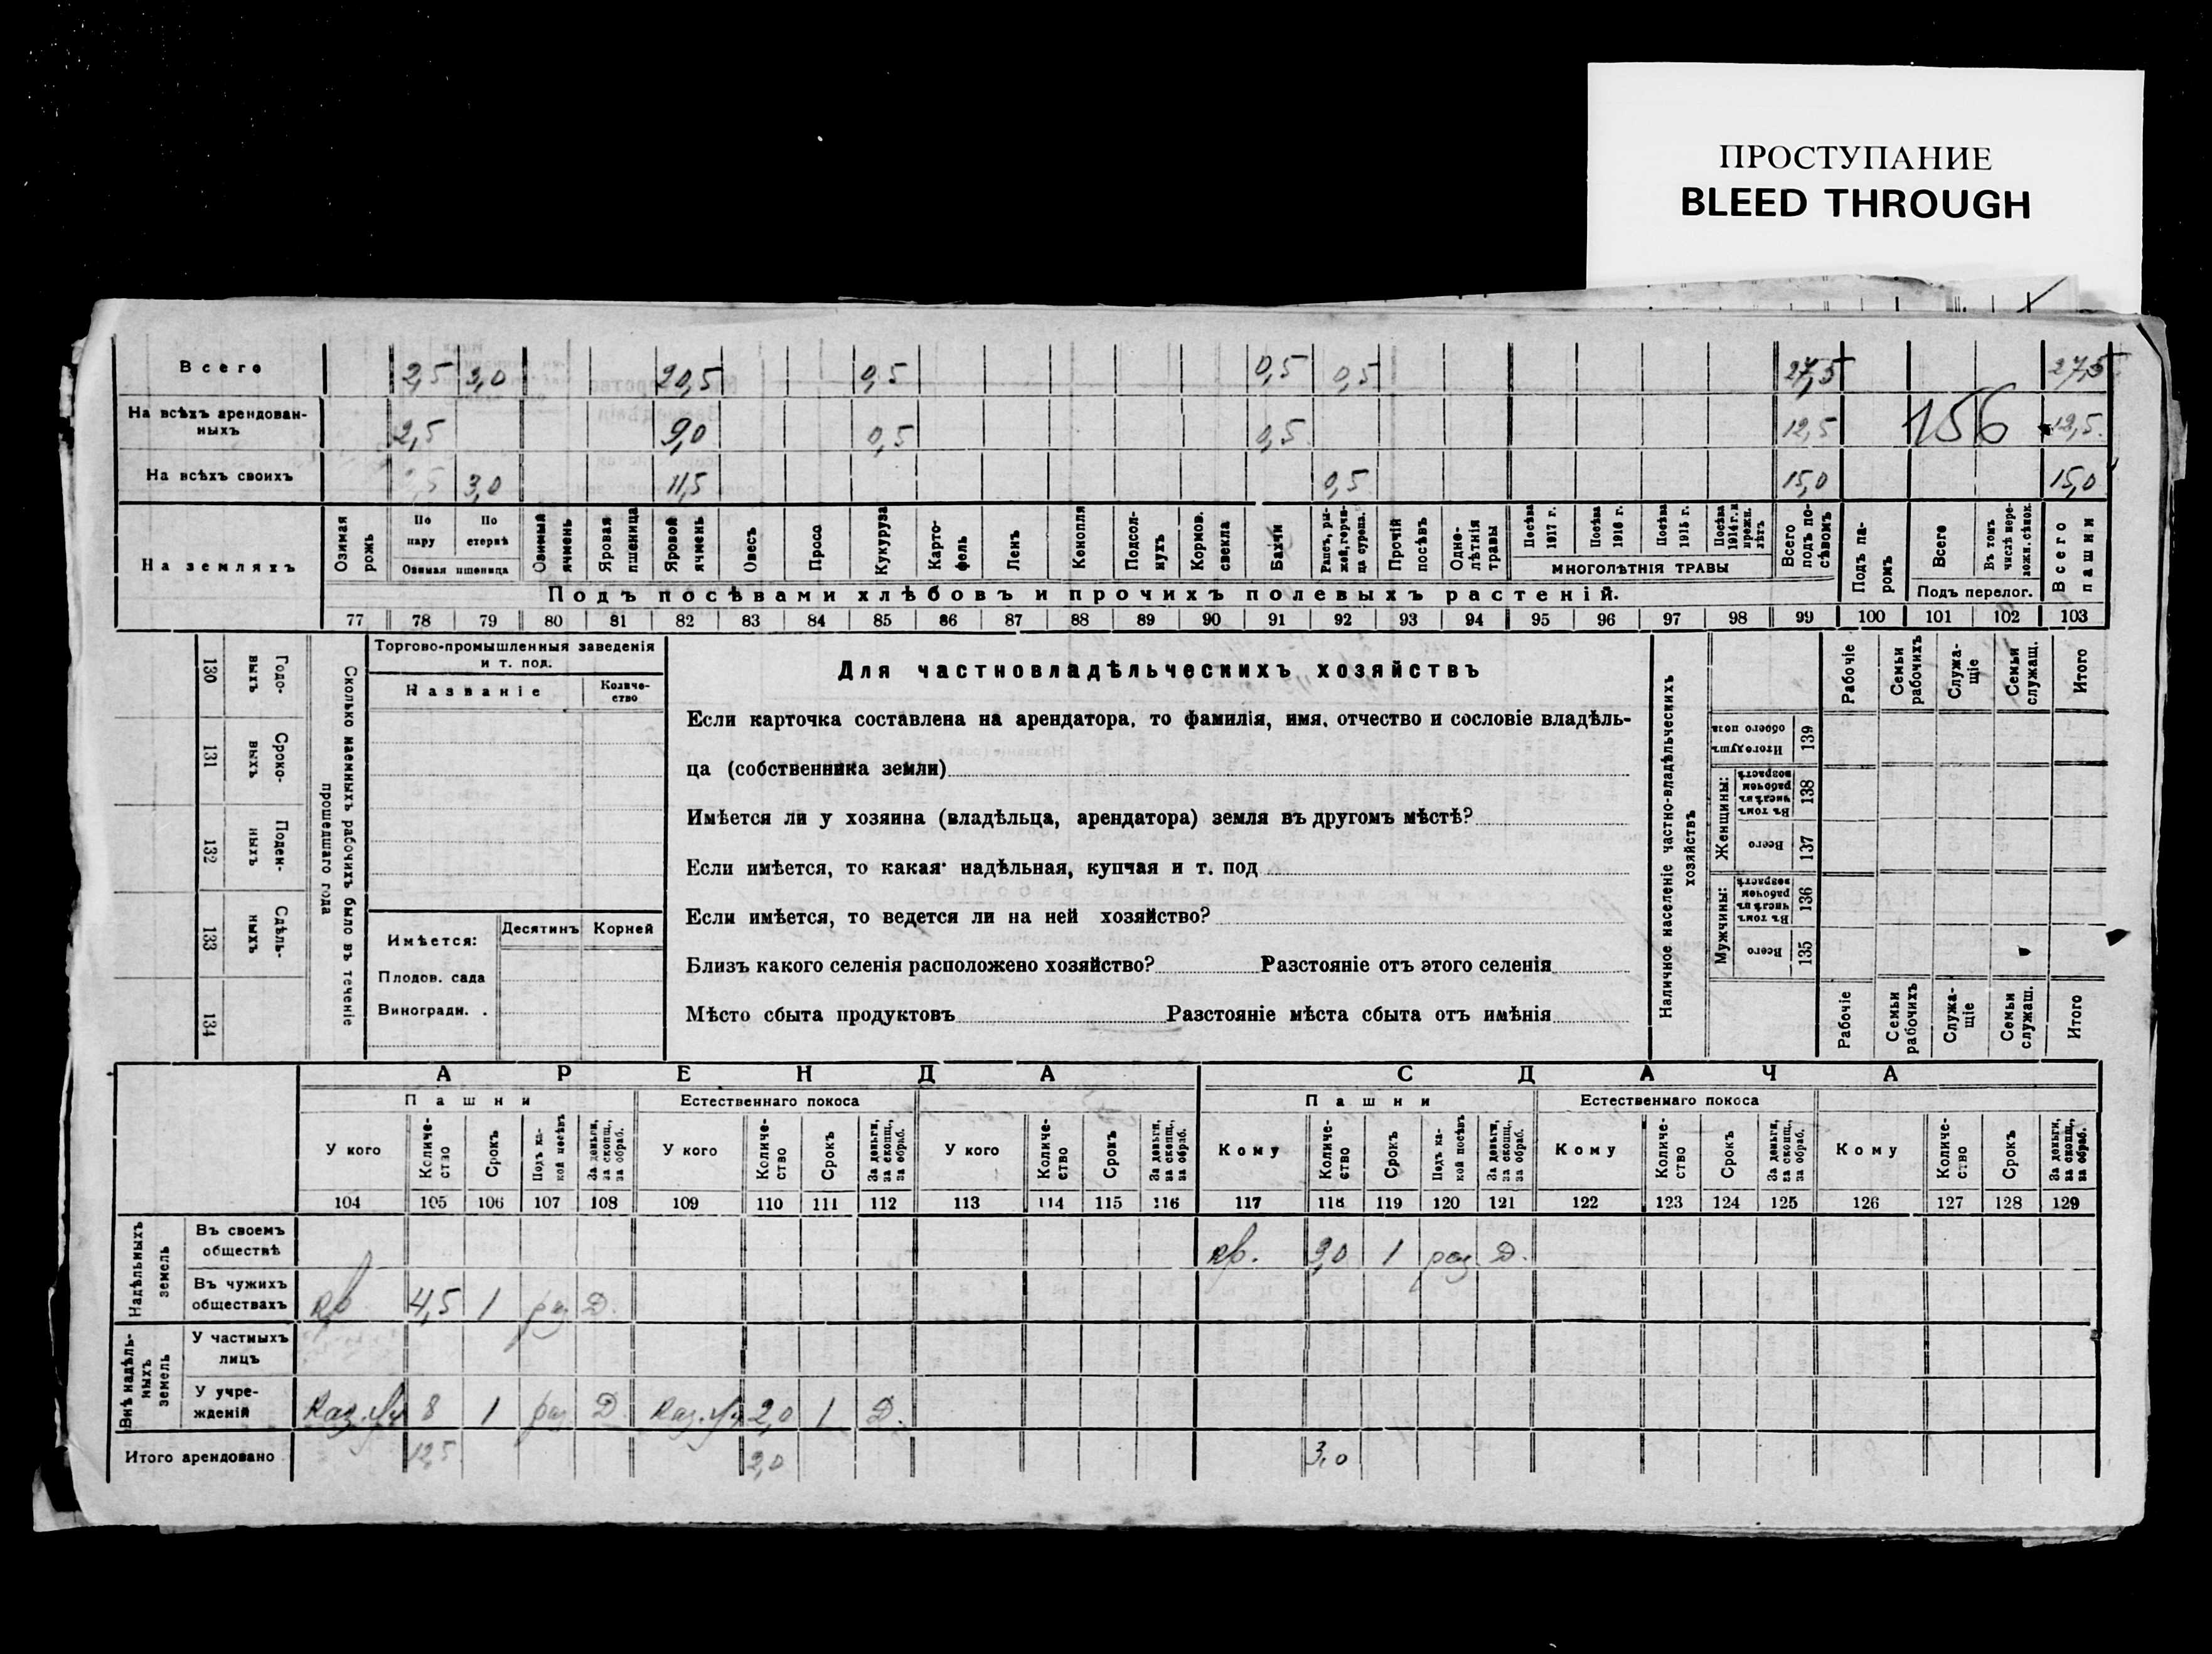 ПРОСТУПАНИЕ
BLEED THROUGH
Всего 2,5 3,0 20,5 0,5 0,5 0,5 27,5 27,5
На всѣхъ арендован-
ныхъ 2,5 9,0 0,5 0,5 12,5 156 12,5
На всѣхъ своихъ 3,0 11,5 0,5 15,0 15,0
На земляхъ
Озимая рожь
По пару
По стернѣ
Озимая пшеница
Озимый ячмень
Яровая пшеница
Яровой ячмень
Овесъ
Просо
Кукуруза
Карто-
фель
Ленъ
Кенопля
Подсол-
нухъ
Кормов. свекла
Бахчи
Рапсъ, ры-
жей, горчи-
ца сурепа.
Прочій посѣвъ
Одно-
лѣтнія травы
Посѣва 1917 г.
Посѣва 1916 г.
Посѣва 1915 г.
Посѣва 1914 г. и прежн. лѣтъ
МНОГОЛѢТНІЯ ТРАВЫ
Всего подъ по-
сѣвомъ
Подъ па-
ромъ
Всего
Въ томъ числѣ пере-
ложн. сѣнок.
Подъ перелог.
Всего пашни
Подъ посѣвами хлѣбовъ и прочихъ полевыхъ растеній.
77 78 79 80 81 82 83 84 85 86 87 88 89 90 91 92 93 94 95 96 97 98 99 100 101 102 103
130 Годо-
выхъ
131 Сроко-
выхъ
132 Поден-
ныхъ
133 Сдѣль-
ныхъ
134
Сколько наемныхъ рабочихъ было въ теченіе
прошедшаго года
Торгово-промышленныя заведенія
и т. под.
Названіе
Количе-
ство
Имѣется:
Десятинъ
Корней
Плодов. сада
Виноградн. .
Для частновладѣльческихъ хозяйствъ
Если карточка составлена на арендатора, то фамилія, имя, отчество и сословіе владѣль-
ца (собственника земли)
Имѣется ли у хозяина (владѣльца, арендатора) земля въ другомъ мѣстѣ?
Если имѣется, то какая· надѣльная, купчая и т. под
Если имѣется, то ведется ли на ней хозяйство?
Близъ какого селенія расположено хозяйство? Разстояніе отъ этого селенія
Мѣсто сбыта продуктовъ Разстояніе мѣста сбыта отъ имѣнія
Наличное населеніе частно-владѣльческихъ
хозяйствъ
Рабочіе
Семьи рабочихъ
Служа-
щіе
Семьи служащ.
Итого
Итого душъ обоего пола 139
Женщины:
Въ томъ числѣ въ рабочемъ возрастѣ 138
Всего 137
Мужчины:
Въ томъ числѣ въ рабочемъ возрастѣ 136
Всего 135
Рабочіе
Семьи рабочихъ
Служа-
щіе
Семьи служащ.
Итого
АРЕНДА СДАЧА
Пашни Естественнаго покоса Пашни Естественнаго покоса
У кого
Количе-
ство
Срокъ
Подъ ка-
кой посѣвъ
За деньги, за скопщ., за обраб.
У кого
Количе-
ство
Срокъ
За деньги, за скопщ., за обраб.
У кого
Количе-
ство
Срокъ
За деньги, за скопщ., за обраб.
Кому
Количе-
ство
Срокъ
Подъ ка-
кой посѣвъ
За деньги, за скопщ., за обраб.
Кому
Количе-
ство
Срокъ
За деньги, за скопщ., за обраб.
Кому
Количе-
ство
Срокъ
За деньги, за скопщ., за обраб.
104 105 106 107 108 109 110 111 112 113 114 115 116 117 118 119 120 121 122 123 124 125 126 127 128 129
Надѣльныхъ земель
Въ своемъ
обществѣ кр. 3,0 1 раз. Д.
Въ чужихъ
обществахъ кр. 4,5 1 раз Д.
Внѣ надѣль-
ныхъ земель
У частныхъ
лицъ
У учре-
жденій Каз. 8 1 раз Д. Каз. 2,0 1 Д.
Итого арендовано 12,5 2,0 3,0